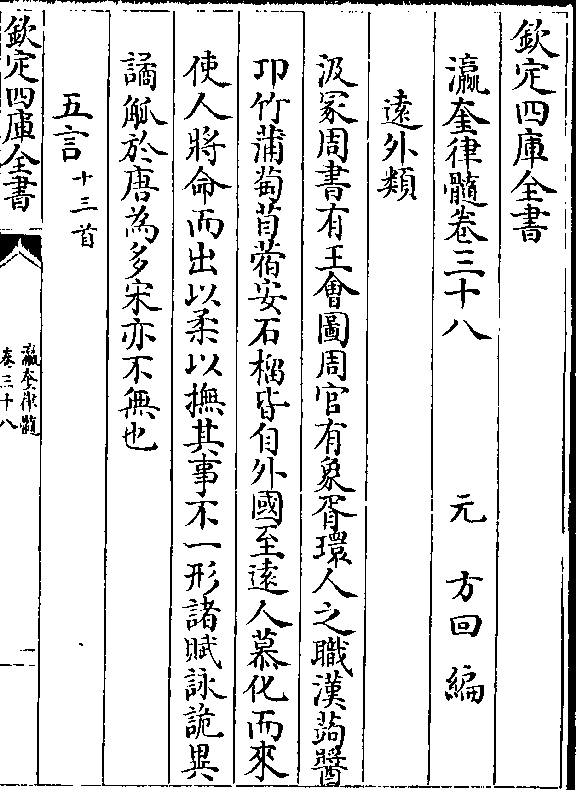 欽定四庫全書
瀛奎律髓卷三十八
元 方回 編
遠外類
汲冢周書有王會圖周官有象胥環人之職漢蒟醬
卭竹蒲萄苜蓿安石榴皆自外國至遠人慕化而來
使人將命而出以柔以撫其事不一形諸賦詠詭異
譎觚於唐為多宋亦不無也
五言十三首
欽定四庫全書
瀛奎律髓
卷三十八
一